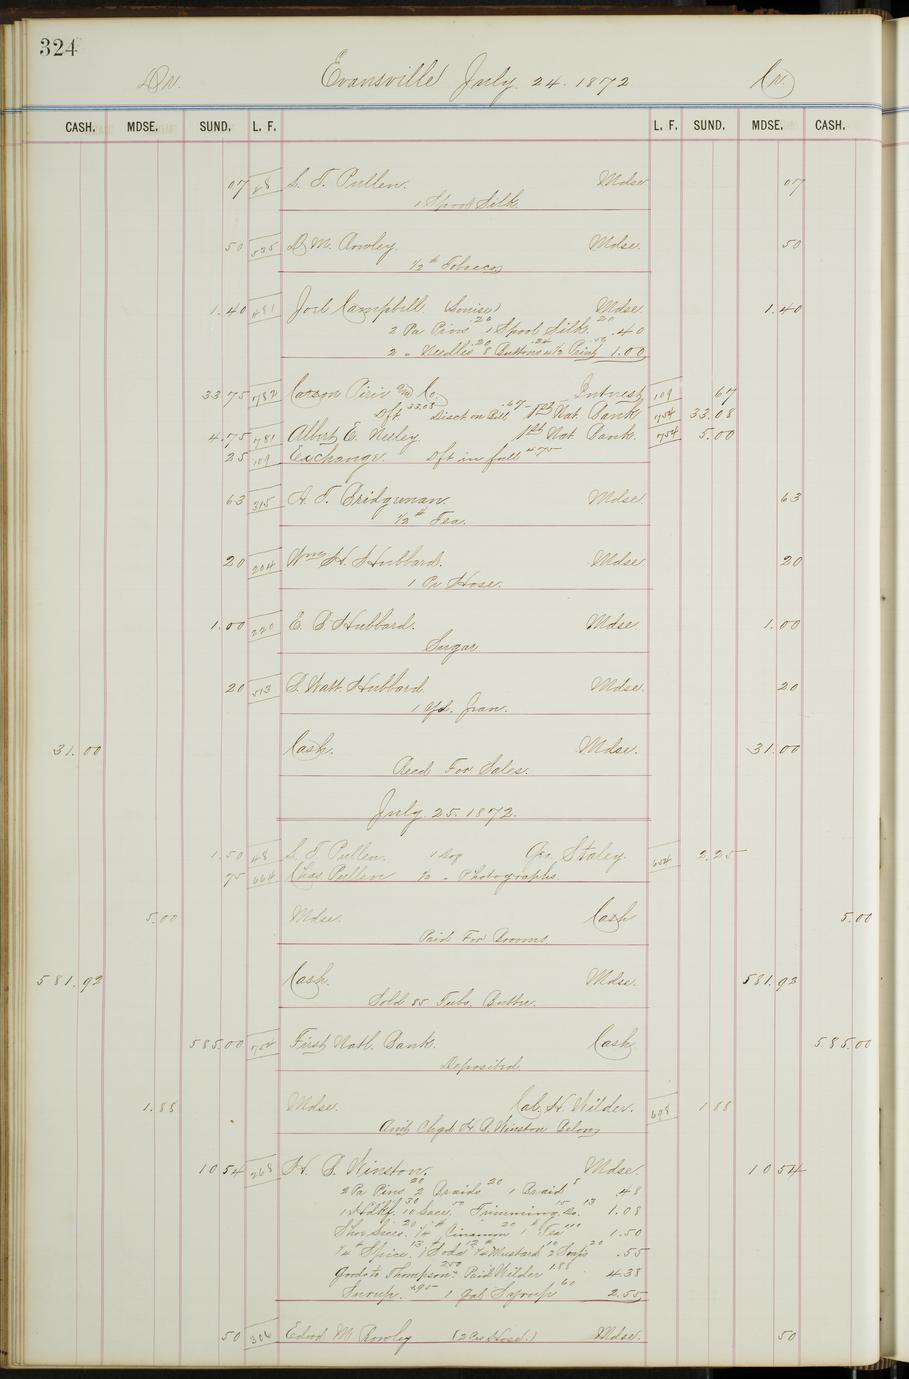 324
Dr. Evansville July 24. 1872 Cr.
CASH. MDSE. SUND. L. F. L. F. SUND. MDSE. CASH.
07 48 S. T. Pullen. Mdse 07
1 Spool Silk
50 535 D. M. Rowley. Mdse. 50
1/2 # Tobacco
1.40 481 Joel Campbell. (Louise) Mdse. 1.40
2 Pa Pins .20 1 Spool Silk .20 .40
2 " Needles .20 8 Buttons .24 4 1/2 Print 1.00
33.75 782 Carson Pirie & Co. Interest 109 67
Dft 33.08 Disct on Bill .67 1st Nat. Bank 754 33.08
4.75 781 Albert E. Neeley 1st Nat. Bank. 754 5.00
25 109 Exchange. Dft in full 4.75
63 315 A. T. Bridgman. Mdse. 63
1/2 # Tea.
20 204 Wm H. Hubbard. Mdse. 20
1 Pr Hose.
1.00 220 E. B. Hubbard. Mdse. 1.00
Sugar
20 513 S. Watt. Hubbard. Mdse. 20
1 Yd. Jean.
31.00 Cash. Mdse. 31.00
Recd For Sales.
July 25. 1872.
1.50 48 S. T. Pullen. 1 Doz Geo. Staley. 654 2.25
75 664 Chas Pullen 1/2 " Photographs.
5.00 Mdse. Cash 5.00
Paid For Brooms.
581.92 Cash. Mdse. 581.92
Sold 85 Tubs. Butter.
585.00 754 First Natl. Bank. Cash 585.00
Deposited.
1.88 Mdse. Cal. H. Wilder. 698 1.88
Amt Chgd H. B. Winston Below
10 54 268 H. B. Winston. Mdse. 10 54
2 Pa Pins 20 2 Braids 20 1 Braid 8 .48
1 Hdkf. 30 10 Lace. 50 Trimming 15 Do. 13 1.08
Shoe Laces. 20 1/4 # Cinamon 20 1 # Tea 1.10 1.50
1/4 # Spice. 13 1 Soda 12 1/4 # Mustard 10 2 Soaps 20 .55
Goods to Thompson 2.50 Paid Wilder 1.88 4.38
Syrup. 1.95 1 Gal Syrup 60 2.55
50 306 Edwd M. Rowley (2 Pr Hose.) Mdse. 50